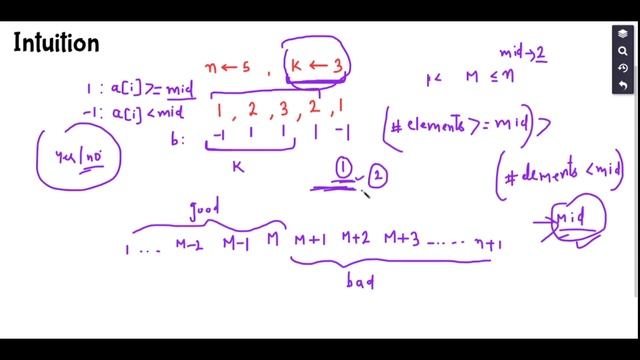 Intuition
n ← 5 , K ← 3
mid → 2
1 < M ≤ n
1 : a[i] >= mid
-1 : a[i] < mid
1 , 2 , 3 , 2 , 1
b: -1 1 1 1 -1
K
(# elements >= mid) >
(# elements < mid)
yes/no
1
2
mid
good
1 ... M-2 M-1 M M+1 M+2 M+3 ...... n+1
bad